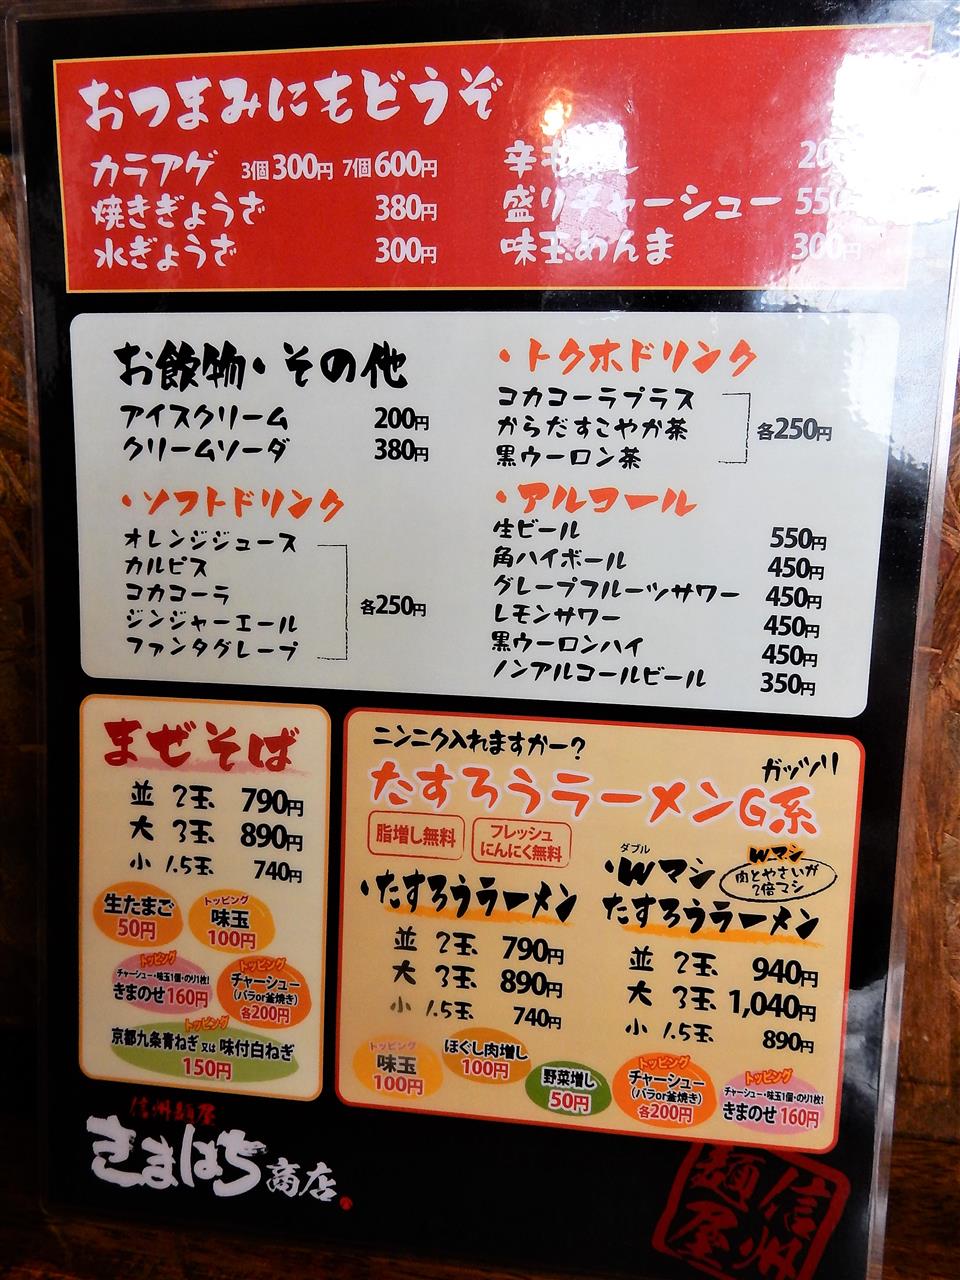 おつまみにもどうぞ
カラアゲ 3個300円 7個600円
焼きぎょうざ 380円
水ぎょうざ 300円
辛も
盛りチャーシュー 550
味玉めんま 300円
お飲物・その他
アイスクリーム 200円
クリームソーダ 380円
・ソフトドリンク
オレンジジュース
カルピス
コカコーラ
ジンジャーエール
ファンタグレープ
各250円
・トクホドリンク
コカコーラプラス
からだすこやか茶
黒ウーロン茶
各250円
・アルコール
生ビール 550円
角ハイボール 450円
グレープフルーツサワー 450円
レモンサワー 450円
黒ウーロンハイ 450円
ノンアルコールビール 350円
まぜそば
並 2玉 790円
大 3玉 890円
小 1.5玉 740円
生たまご
50円
トッピング
味玉
100円
トッピング
チャーシュー・味玉1個・のり1枚!
きまのせ160円
トッピング
チャーシュー
(バラor釜焼き)
各200円
トッピング
京都九条青ねぎ又は味付白ねぎ
150円
ニンニク入れますかー?
ガッツリ
たすろうラーメンG系
脂増し無料
フレッシュ
にんにく無料
・たすろうラーメン
並 2玉 790円
大 3玉 890円
小 1.5玉 740円
ダブル
・Wマシ
たすろうラーメン
Wマシ
肉とやさいが
2倍マシ
並 2玉 940円
大 3玉 1,040円
小 1.5玉 890円
トッピング
味玉
100円
ほぐし肉増し
100円
野菜増し
50円
トッピング
チャーシュー
(バラor釜焼き)
各200円
トッピング
チャーシュー・味玉1個・のり1枚!
きまのせ160円
信州麺屋
きまはち商店
信州
麺屋